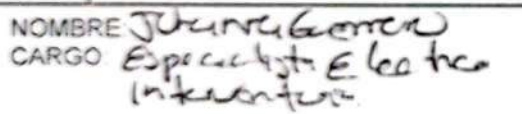 NOMBRE Johanna Guerrero
CARGO Especialista Electrica
Interventoria